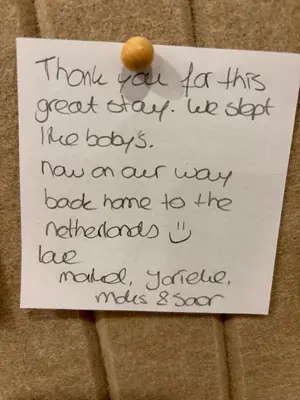 Thank you for this
great stay. We slept
like baby's.
now on our way
back home to the
netherlands :)
love
&